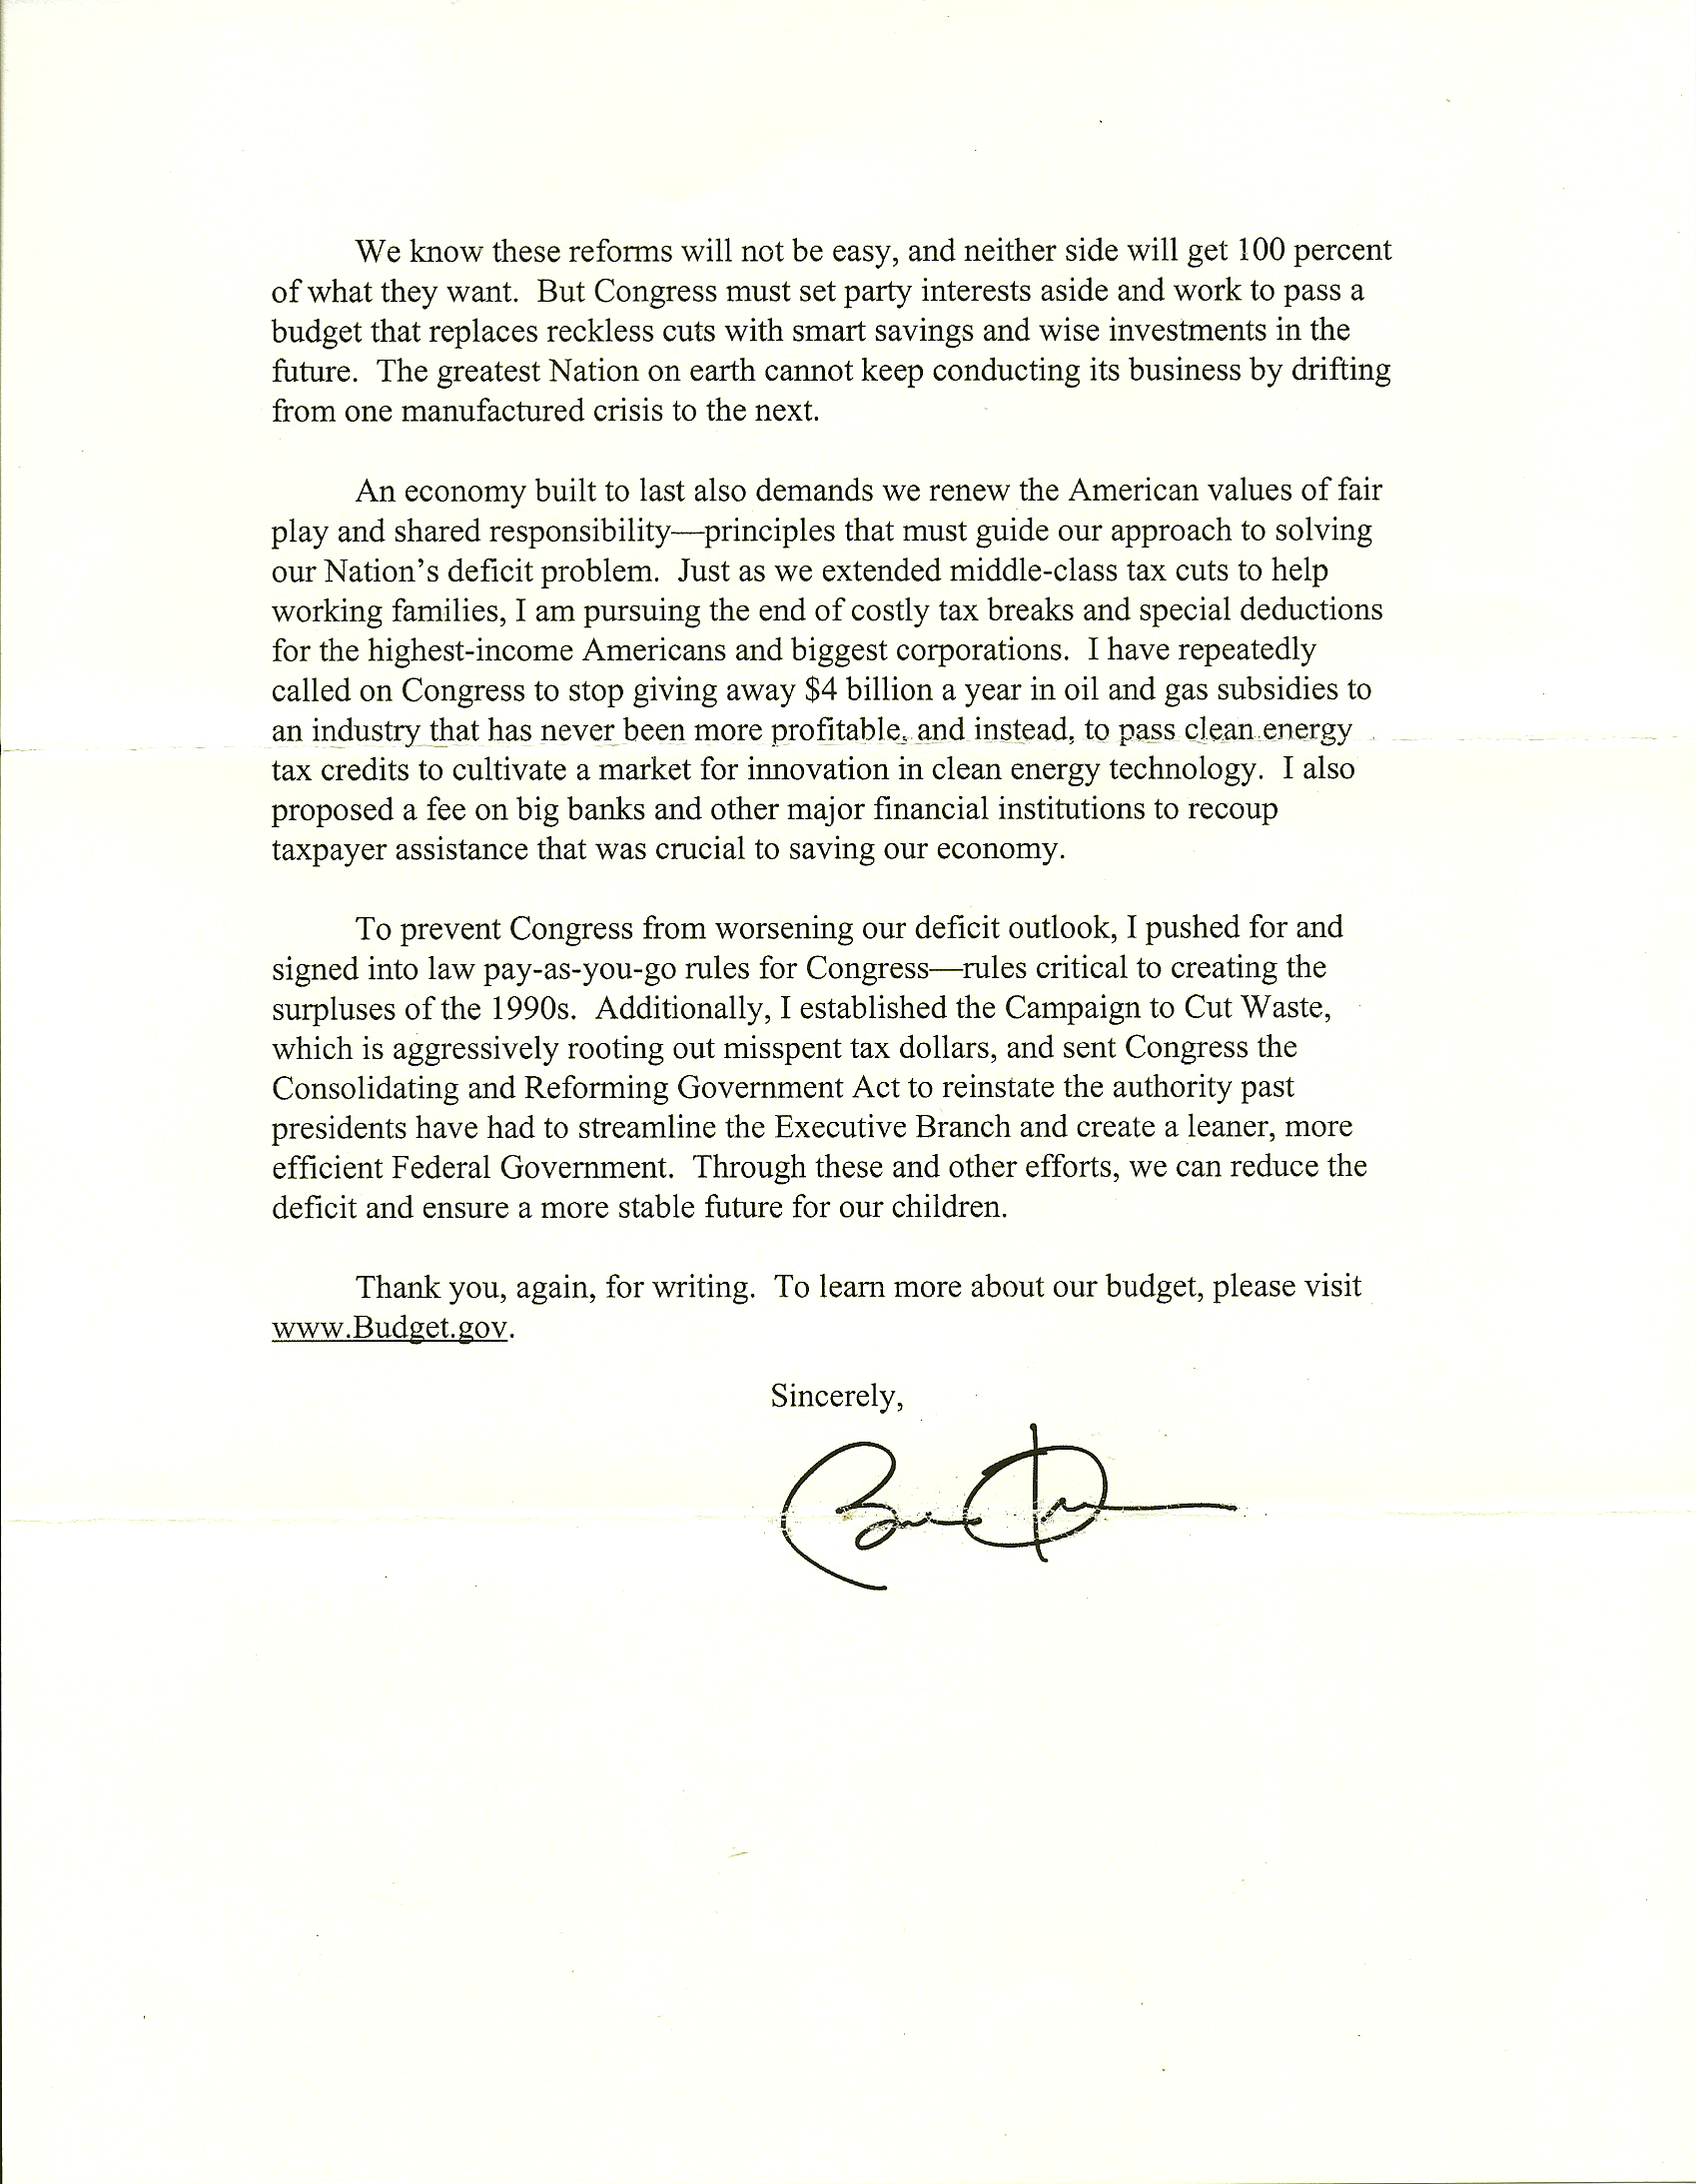 We know these reforms will not be easy, and neither side will get 100 percent
of what they want.  But Congress must set party interests aside and work to pass a
budget that replaces reckless cuts with smart savings and wise investments in the
future.  The greatest Nation on earth cannot keep conducting its business by drifting
from one manufactured crisis to the next.
An economy built to last also demands we renew the American values of fair
play and shared responsibility—principles that must guide our approach to solving
our Nation’s deficit problem.  Just as we extended middle-class tax cuts to help
working families, I am pursuing the end of costly tax breaks and special deductions
for the highest-income Americans and biggest corporations.  I have repeatedly
called on Congress to stop giving away $4 billion a year in oil and gas subsidies to
an industry that has never been more profitable, and instead, to pass clean energy
tax credits to cultivate a market for innovation in clean energy technology.  I also
proposed a fee on big banks and other major financial institutions to recoup
taxpayer assistance that was crucial to saving our economy.
To prevent Congress from worsening our deficit outlook, I pushed for and
signed into law pay-as-you-go rules for Congress—rules critical to creating the
surpluses of the 1990s.  Additionally, I established the Campaign to Cut Waste,
which is aggressively rooting out misspent tax dollars, and sent Congress the
Consolidating and Reforming Government Act to reinstate the authority past
presidents have had to streamline the Executive Branch and create a leaner, more
efficient Federal Government.  Through these and other efforts, we can reduce the
deficit and ensure a more stable future for our children.
Thank you, again, for writing.  To learn more about our budget, please visit
www.Budget.gov.
Sincerely,